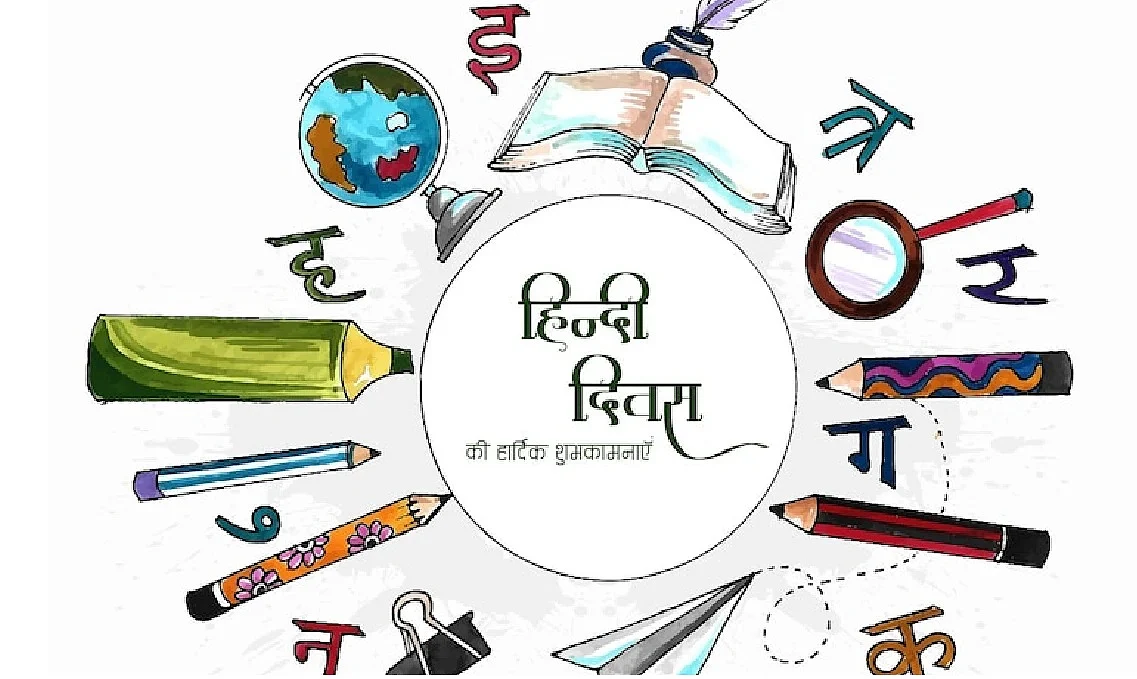 इ
त्र
ह
र
हिन्दी
दिवस
की हार्दिक शुभकामनाएँ
ग
७
न
क